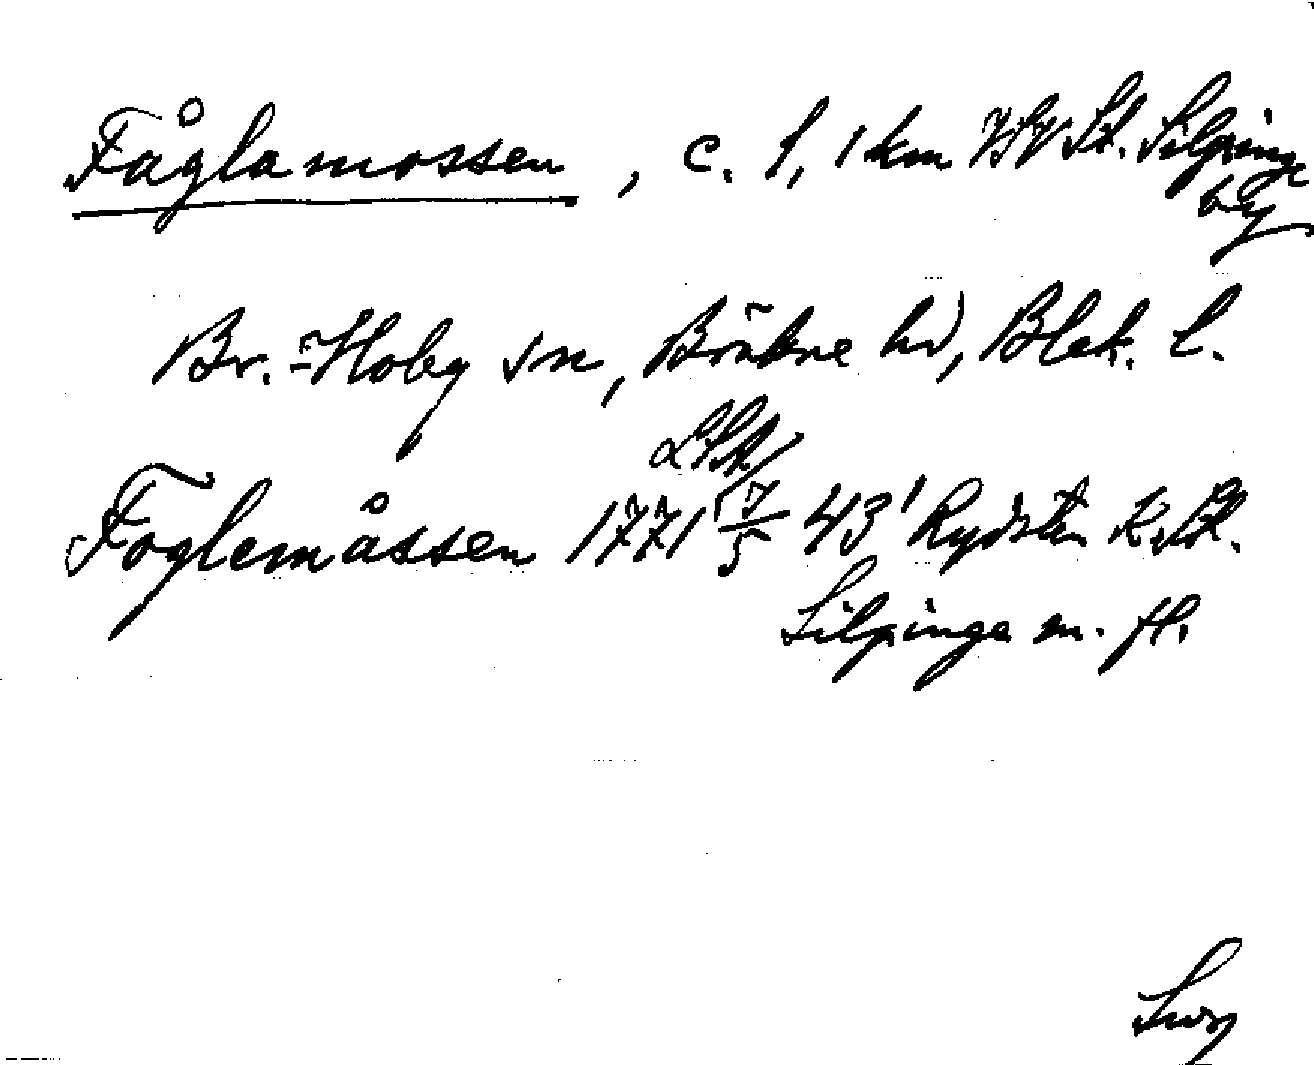 Fåglamossen, c. 1,1 km VSV St. Silpinge
by
Br.-Hoby sn, Bräkne hd, Blek. l.
LSA
Foglemåssen 1771 7/5 43'
Silpinge m. fl.